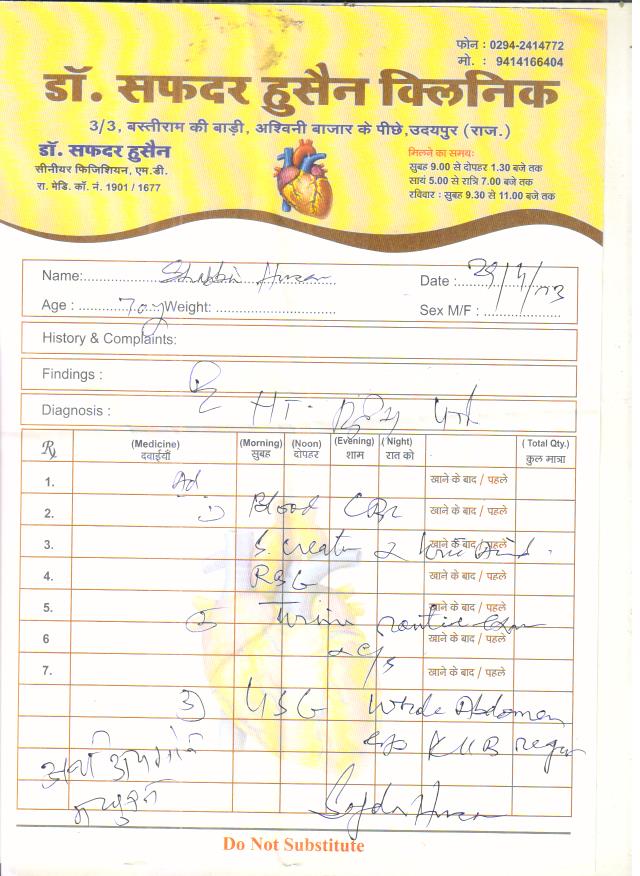 फोन : 0294-2414772
मो. : 9414166404
डॉ. सफदर हुसैन क्लिनिक
3/3, बस्तीराम की बाड़ी, अश्विनी बाजार के पीछे,उदयपुर (राज.)
डॉ. सफदर हुसैन
सीनीयर फिजिशियन, एम.डी.
रा. मेडि. कॉ. नं. 1901 / 1677
मिलने का समयः
सुबह 9.00 से दोपहर 1.30 बजे तक
सायं 5.00 से रात्रि 7.00 बजे तक
रविवार : सुबह 9.30 से 11.00 बजे तक
Name: Husan Date :
Age : 70y Weight: Sex M/F :
History & Complaints:
Findings :
Diagnosis : HT
Rx (Medicine) (Morning) (Noon) (Evening) (Night) (Total Qty.)
दवाईयाँ सुबह दोपहर शाम रात को कुल मात्रा
1. Ad खाने के बाद / पहले
2. 1) Blood CBC खाने के बाद / पहले
3. S. Creatin खाने के बाद / पहले
4. RBG खाने के बाद / पहले
5. खाने के बाद / पहले
2) Urine routine Exam
6 खाने के बाद / पहले
& C/S
7. खाने के बाद / पहले
3) USG Whole Abdomen
KUB region
Do Not Substitute